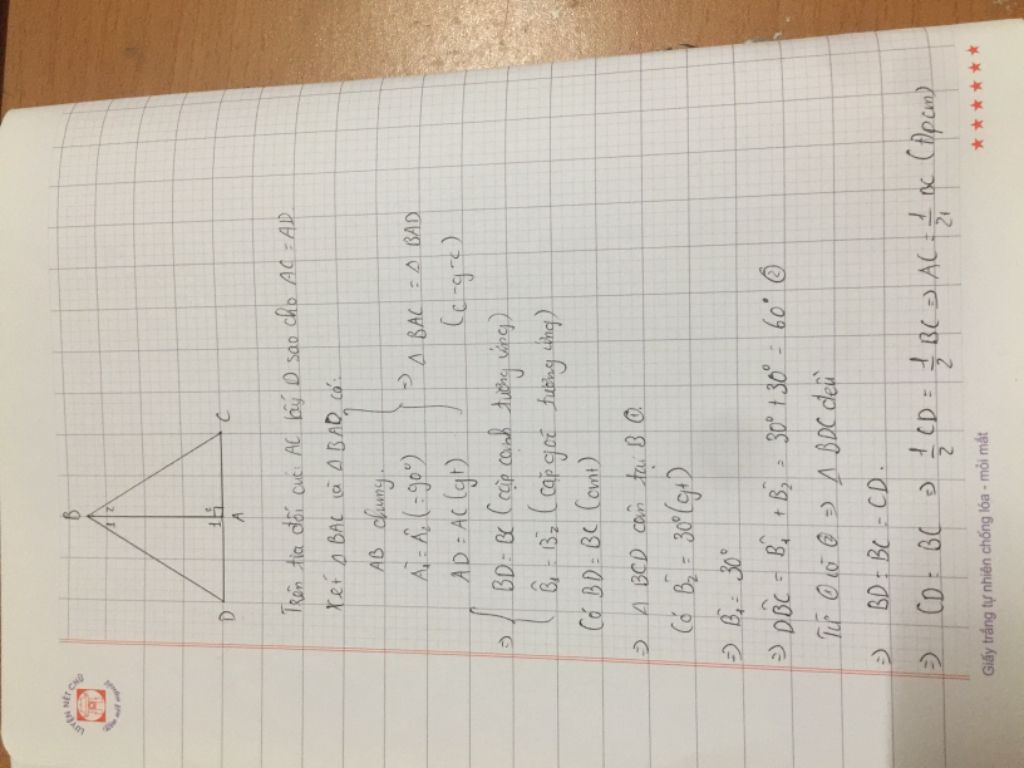 LUYỆN NÉT CHỮ
B
1 2
1 2
D A C
Trên tia đối của AC lấy D sao cho AC = AD
Xét Δ BAC và Δ BAD có:
AB chung.
Â₁ = Â₂ (= 90°)
AD = AC (gt)
} => Δ BAC = Δ BAD
(c-g-c)
=> { BD = BC (cặp cạnh tương ứng)
B̂₁ = B̂₂ (cặp góc tương ứng)
Có BD = BC (cmt)
=> Δ BCD cân tại B ①
Có B̂₂ = 30° (gt)
=> B̂₁ = 30°
=> DB̂C = B̂₁ + B̂₂ = 30° + 30° = 60° ②
Từ ① và ② => Δ BDC đều
=> BD = BC = CD.
=> CD = BC => 1/2 CD = 1/2 BC => AC = 1/2 BC (đpcm)
Giấy trắng tự nhiên chống lóa - mỏi mắt